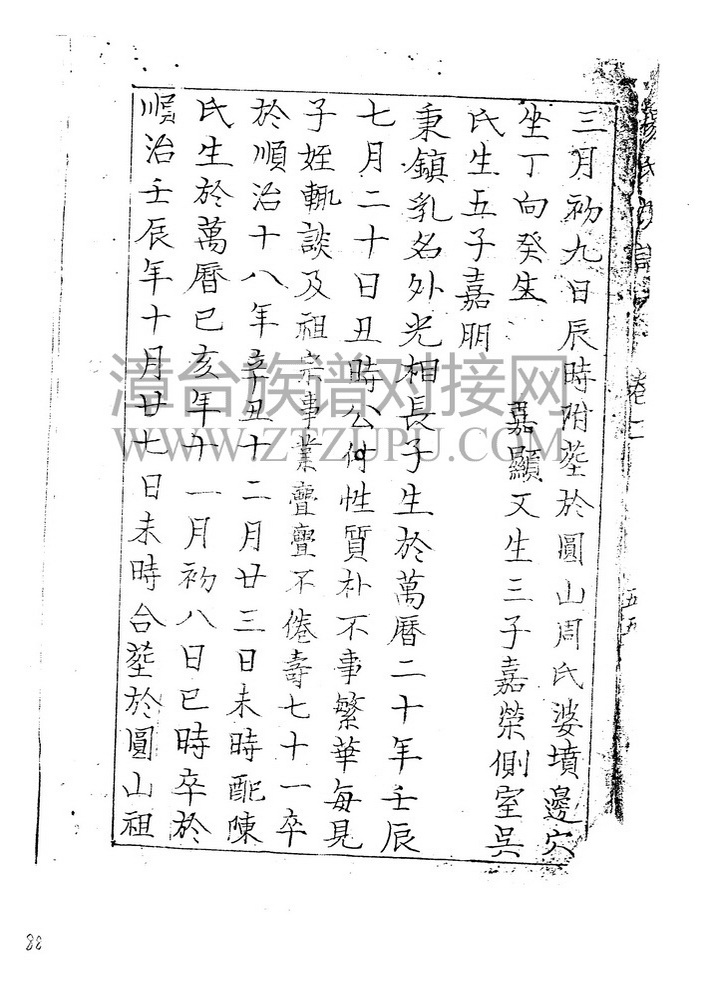 楊氏族譜 卷二 五五
三月初九日辰時附塟於圓山周氏婆墳邊穴
坐丁向癸生 嘉顯又生三子嘉榮側室吳
氏生五子嘉明
秉鎮乳名外光相長子生於萬曆二十年壬辰
七月二十日丑時公付性質朴不事繁華每見
子姪輒談及祖宗事業亹亹不倦壽七十一卒
於順治十八年辛丑十二月廿三日未時配陳
氏生於萬曆己亥年十一月初八日巳時卒於
順治壬辰年十月廿七日未時合塟於圓山祖
漳台族谱对接网
WWW.ZTZUPU.COM
88